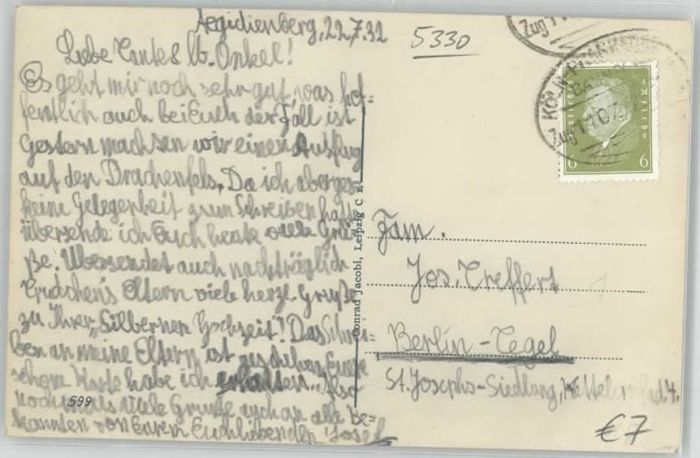 Aegidienberg, 22.7.32
5330
Liebe Tante & lb. Onkel!
Es geht mir noch sehr gut was hof-
fentlich auch bei Euch der Fall ist
Gestern machten wir einen Ausflug
auf den Drachenfels. Da ich aber ges.
keine Gelegenheit zum Schreiben hatte
übersende ich Euch heute viele Grü-
ße! Übersendet auch nachträglich
Trudchen's Eltern viele herzl. Grüße
zu Ihrer „Silbernen Hochzeit“! Das Schrei-
ben an meine Eltern ist
schöne Karte habe ich erhalten. Also
nochmals viele Grüße auch an alle be-
kannten von Eurem Euch liebenden Josef
599
Conrad Jacobi, Leipzig C
KÖLN-FRANKFURT
Zug 1107
6 6
Fam.
Jos. Treffert
Berlin-Tegel
St. Josephs-Siedlung,
€7